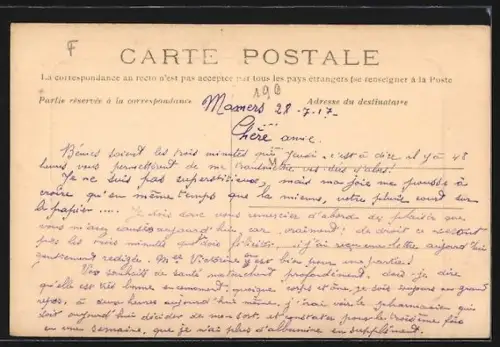 F
CARTE POSTALE
La correspondance au recto n'est pas acceptée par tous les pays étrangers (se renseigner à la Poste
Partie réservée à la correspondance
Adresse du destinataire
Mamers 28-7-17-
Chère amie.
Bénies soient les trois minutes qui jeudi, c'est à dire il y a 48
heures vous permettront de me transmettre
Je ne suis pas superstitieux, mais ma joie me pousse à
croire qu'en même temps que la mienne, votre plume court sur
le papier ..... Je dois donc vous remercier d'abord du plaisir que
vous m'avez causé aujourd'hui, car vraiment, de droit ce
pas les trois minutes que dois j'ai reçu une lettre aujourd'hui
rédigée. Victoire y est bien pour une partie!
Vos souhaits de santé me touchent profondément, dois-je dire
qu'elle est très bonne en ce moment; quoique corps et âme, je sois toujours en grand
repos, à deux heures aujourd'hui même, j'irai voir le pharmacien qui
doit aujourd'hui décider de mon sort, et constater pour la troisième fois
en une semaine, que je n'ai plus d'albumine en supplément.